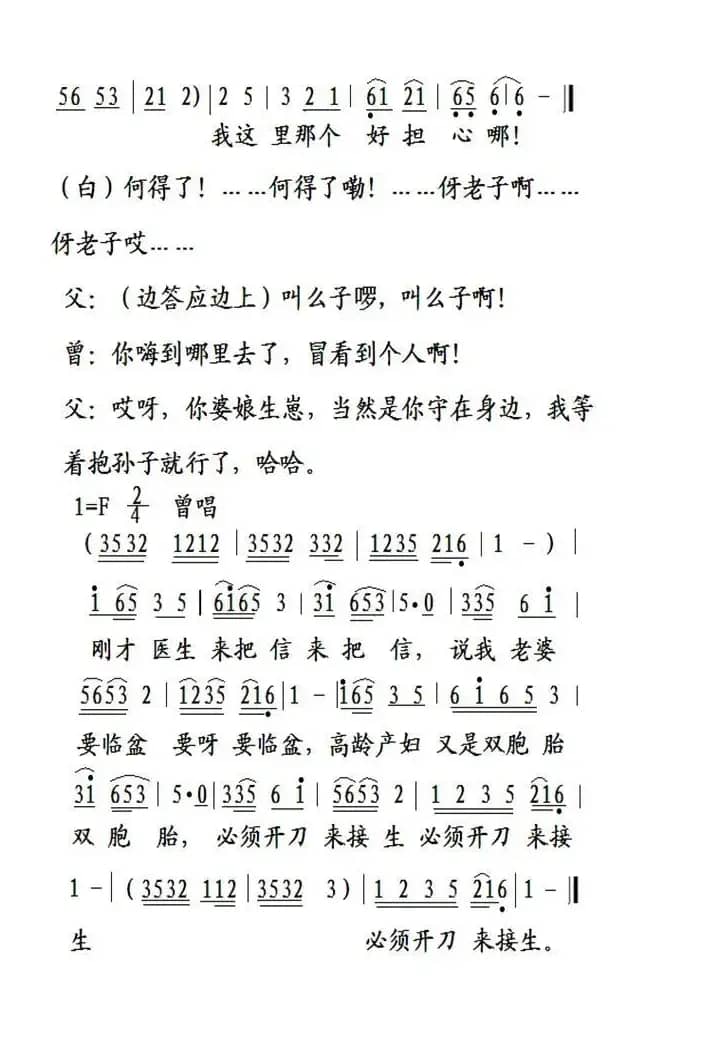 56 53 | 21 2) | 2 5 | 3 21 | 6i 21 | 65 6 | 6 - ‖
我这 里那个 好 担 心 哪!
(白)何得了!……何得了嘞!……伢老子啊……
伢老子哎……
父:(边答应边上)叫么子啰,叫么子啊!
曾:你嗨到哪里去了,冒看到个人啊!
父:哎呀,你婆娘生崽,当然是你守在身边,我等
着抱孙子就行了,哈哈。
1=F 2/4 曾唱
(3532 1212 | 3532 332 | 1235 216 | 1 - ) |
i 65 3 5 | 6i65 3 | 3i 653 | 5·0 | 335 6 i |
刚才 医生 来把 信 来 把 信, 说我 老婆
5653 2 | 1235 216 | 1 - | i65 3 5 | 6 i 6 5 3 |
要临盆 要呀 要临盆,高龄产妇 又是双胞 胎
3i 653 | 5·0 | 335 6 i | 5653 2 | 1 2 3 5 216 |
双 胞 胎, 必须开刀 来接 生 必须开刀 来接
1 - | (3532 112 | 3532 3) | 1 2 3 5 216 | 1 - ‖
生 必须开刀 来接生。